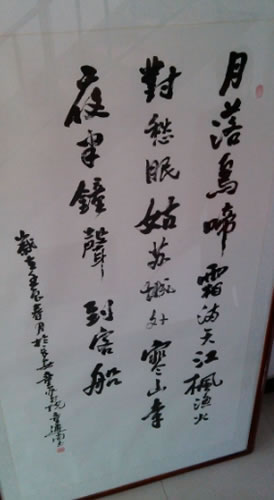 月落烏啼霜满天江楓渔火
對愁眠姑苏城外寒山寺
夜半鐘聲到客船